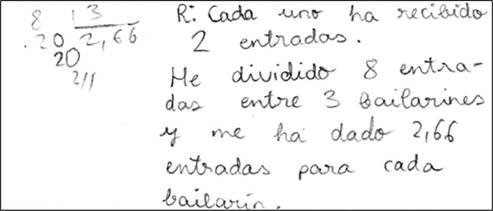 8 | 3
20 2,66
20
2//
R: Cada uno ha recibido
2 entradas.
He dividido 8 entra-
das entre 3 bailarines
y me ha dado 2,66
entradas para cada
bailarín.